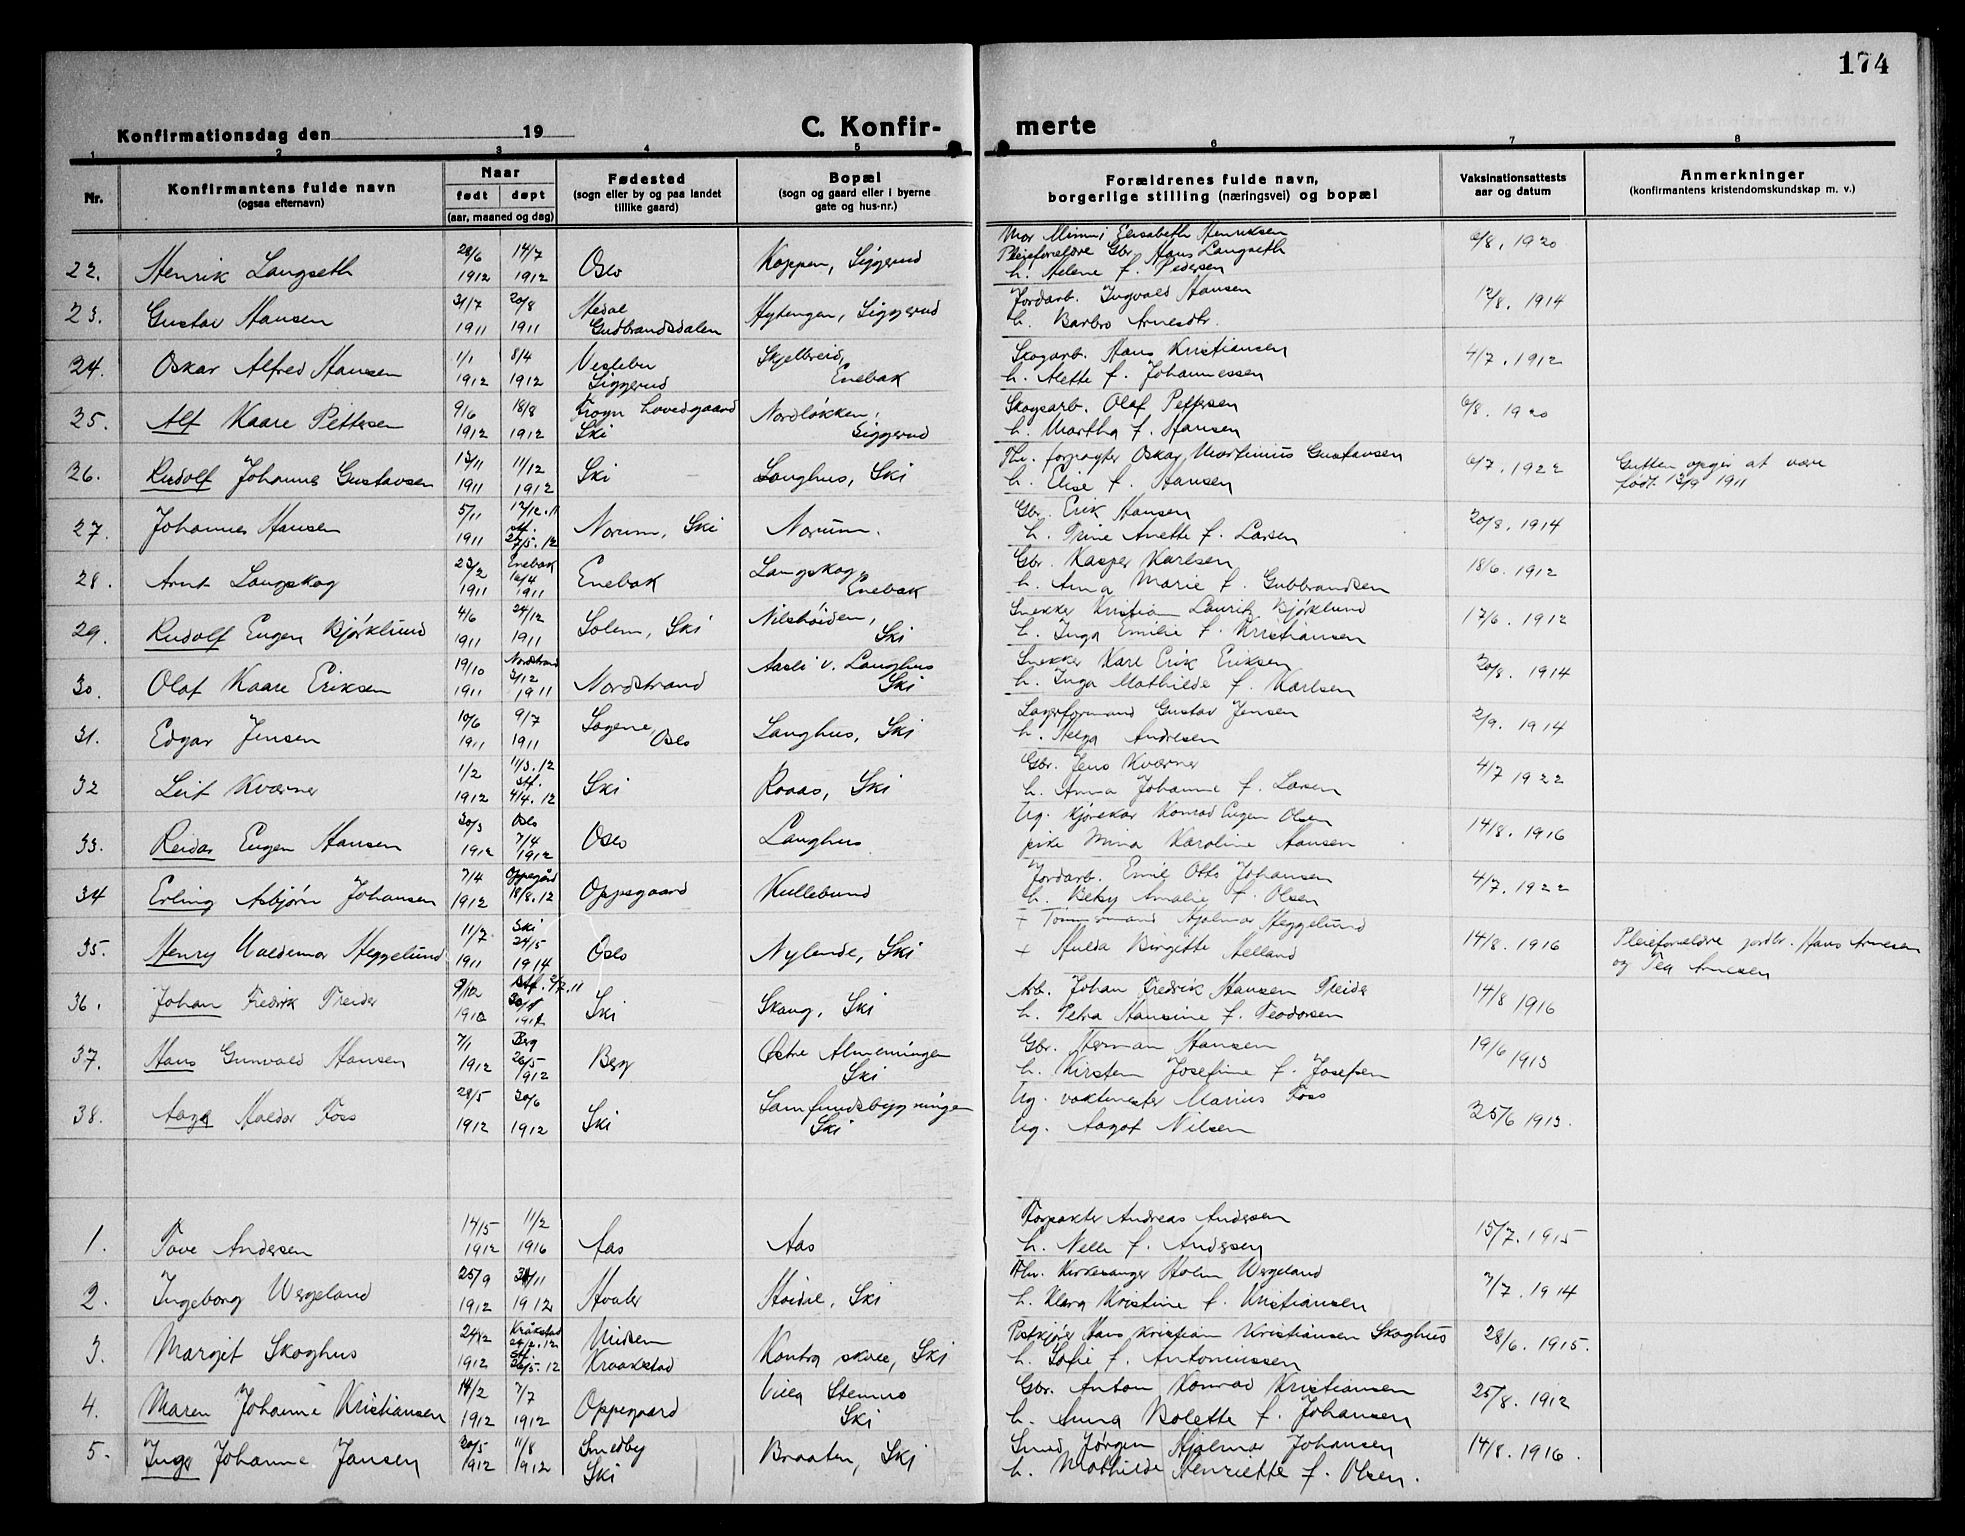 174
Konfirmationsdag den 19
C. Konfir-
merte
1 2 3 4 5 6 7 8
Nr.
Konfirmantens fulde navn
(ogsaa efternavn)
Naar
født døpt
(aar, maaned og dag)
Fødested
(sogn eller by og paa landet
tillike gaard)
Bopæl
(sogn og gaard eller i byerne
gate og hus-nr.)
Forældrenes fulde navn,
borgerlige stilling (næringsvei) og bopæl
Vaksinationsattests
aar og datum
Anmerkninger
(konfirmantens kristendomskundskap m. v.)
22. Henrik Langseth 28/6 1912 14/7 1912 Oslo Koppen, Siggerud
Mor Minni Elisabeth Henriksen
Pleieforeldre Gbr. Hans Langseth
h. Helene f. Pedersen
6/8. 1920
23. Gustav Hansen 31/7 1911 20/8 1911 Hedal Gudbrandsdalen Hytengen, Siggerud
Jordarb. Ingvald Hansen
h. Barbro Arnesdtr.
12/8. 1914
24. Oskar Alfred Hansen 1/1 1912 8/4 1912 Vestebu Siggerud Skjelbreid, Enebak
Skogarb. Hans Kristiansen
h. Mette f. Johannessen
4/7. 1912
25. Alf Kaare Pettersen 9/6 1912 18/8 1912 Frogn hovedgaard Ski Nordløkken, Siggerud
Skogsarb. Olaf Pettersen
h. Martha f. Hansen
6/8. 1920
26. Rudolf Johannes Gustavsen 13/11 1911 11/12 1912 Ski Langhus, Ski
Fhv. forpagter Oskar Martinius Gustavsen
h. Elise f. Hansen
6/7. 1922
Gutten opgir at være
født 13/9 1911
27. Johannes Hansen 5/11 1911 17/12.11 st. 27/5.12 Norum, Ski Norum.
Gbr. Erik Hansen
h. Trine Anette f. Larsen
20/8. 1914
28. Arnt Langskog 23/2 1911 Enebak 16/4 1911 Enebak Langskog, Enebak
Gbr. Kasper Karlsen
h. Anna Marie f. Gubbrandsen
18/6. 1912
29. Rudolf Eugen Bjørklund 4/6 1911 24/12 1911 Solem, Ski Nilshøiden, Ski
Snekker Kristian Laurik Bjørklund
h. Inga Emilie f. Kristiansen
17/6. 1912
30. Olaf Kaare Eriksen 19/10 1911 Nordstrand 3/12 1911 Nordstrand Aasli v. Langhus Ski
Snekker Kare Erik Eriksen
h. Inga Mathilde f. Karlsen
20/8. 1914
31. Edgar Jensen 10/6 1911 9/7 1911 Sagene, Oslo Langhus, Ski
Lagerformand Gustav Jensen
h. Helga Andresen
2/9. 1914
32 Leif Kværner 1/2 1912 11/3.12 st. 4/4.12 Ski Roaas, Ski
Gbr. Jens Kværner
h. Anna Johanne f. Larsen
4/7 1922
33. Reidar Eugen Hansen 30/3 1912 Oslo 7/4 1912 Oslo Langhus
Ug. kjørekar Konrad Eugen Olsen
pike Mina Karoline Hansen
14/8. 1916
34 Erling Asbjørn Johansen 7/4 1912 Oppegård 18/8.12 Oppegaard Kullebund
Jordarb. Emil Otto Johansen
h. Betsy Amalie f. Olsen
4/7. 1922
35. Henry Valdemar Heggelund 11/7 1911 Ski 24/5 1914 Oslo Nylende, Ski
+ Tømmermand Hjalmar Heggelund
+ Hulda Birgitte Helland
14/8. 1916
Pleieforeldre jordbr. Hans Arnesen
og Tea Arnesen
36. Johan Fredrik Freider 9/12 Ski Skaug, Ski
Arb. Johan Fredrik Hansen Freider
h. Petra Hansine f. Teodorsen
14/8 1916
37. Hans Gunvald Hansen 7/1 1912 Berg 26/5 1912 Berg Østre Almenningen Ski
Gbr. Herman Hansen
h. Kirsten Josefine f. Josefsen
19/6 1913
38. Aage Haldor Foss 28/5 1912 30/6 1912 Ski Samfundsbygningen Ski
Ug. vaktmester Marius Foss
Ug. Aagot Nilsen
25/6 1913.
1. Tove Andersen 14/5 1912 11/2 1916 Aas Aas
Forpakter Andreas Andersen
h. Nelle f. Andersen
15/7. 1915
2. Ingeborg Wergeland 25/9 1912 /11 1912 Hvaler Høidal, Ski
Fhv. Kirkesanger Holm Wergeland
h. Klara Kristine f. Kristiansen
7/7. 1914
3. Margit Skoghus 24/2 1912 Kråkstad st. 26/5.12 Kraakstad Kontra skole, Ski
Postkjører Hans Kristian Kristiansen Skoghus
h. Sofie f. Antoniussen
28/6. 1915.
4. Maren Johanne Kristiansen 14/2 1912 7/7 1912 Oppegaard Villa Stenmo Ski
Gbr. Anton Konrad Kristiansen
h. Anna Bolette f. Johansen
25/8. 1912
5. Inga Johanne Jansen 30/5 1912 11/8 1912 Smedby Ski Braaten, Ski
Smed Jørgen Hjalmar Johansen
h. Mathilde Henriette f. Olsen.
14/8. 1916.